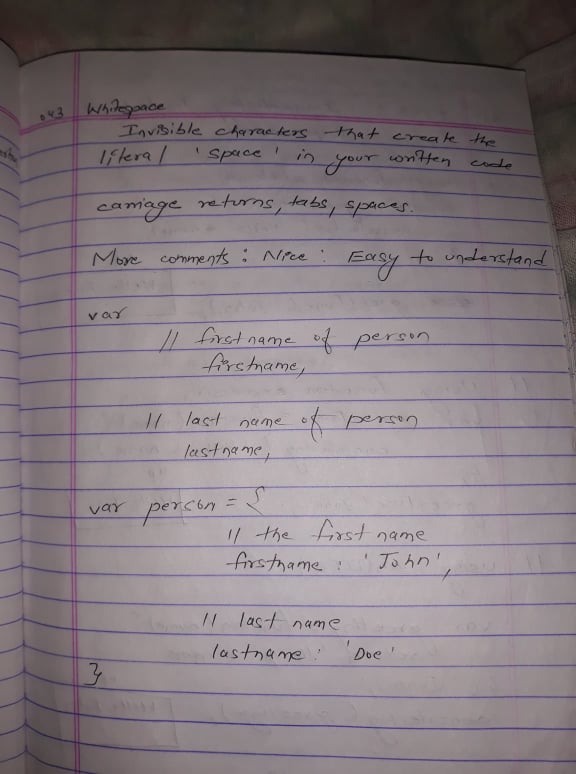 043 Whitespace
Invisible characters that create the
literal 'space' in your written code
carriage returns, tabs, spaces.
More comments : Nice : Easy to understand
var
// first name of person
firstname,
// last name of person
lastname,
var person = {
// the first name
firstname : 'John',
// last name
lastname : 'Doe'
}